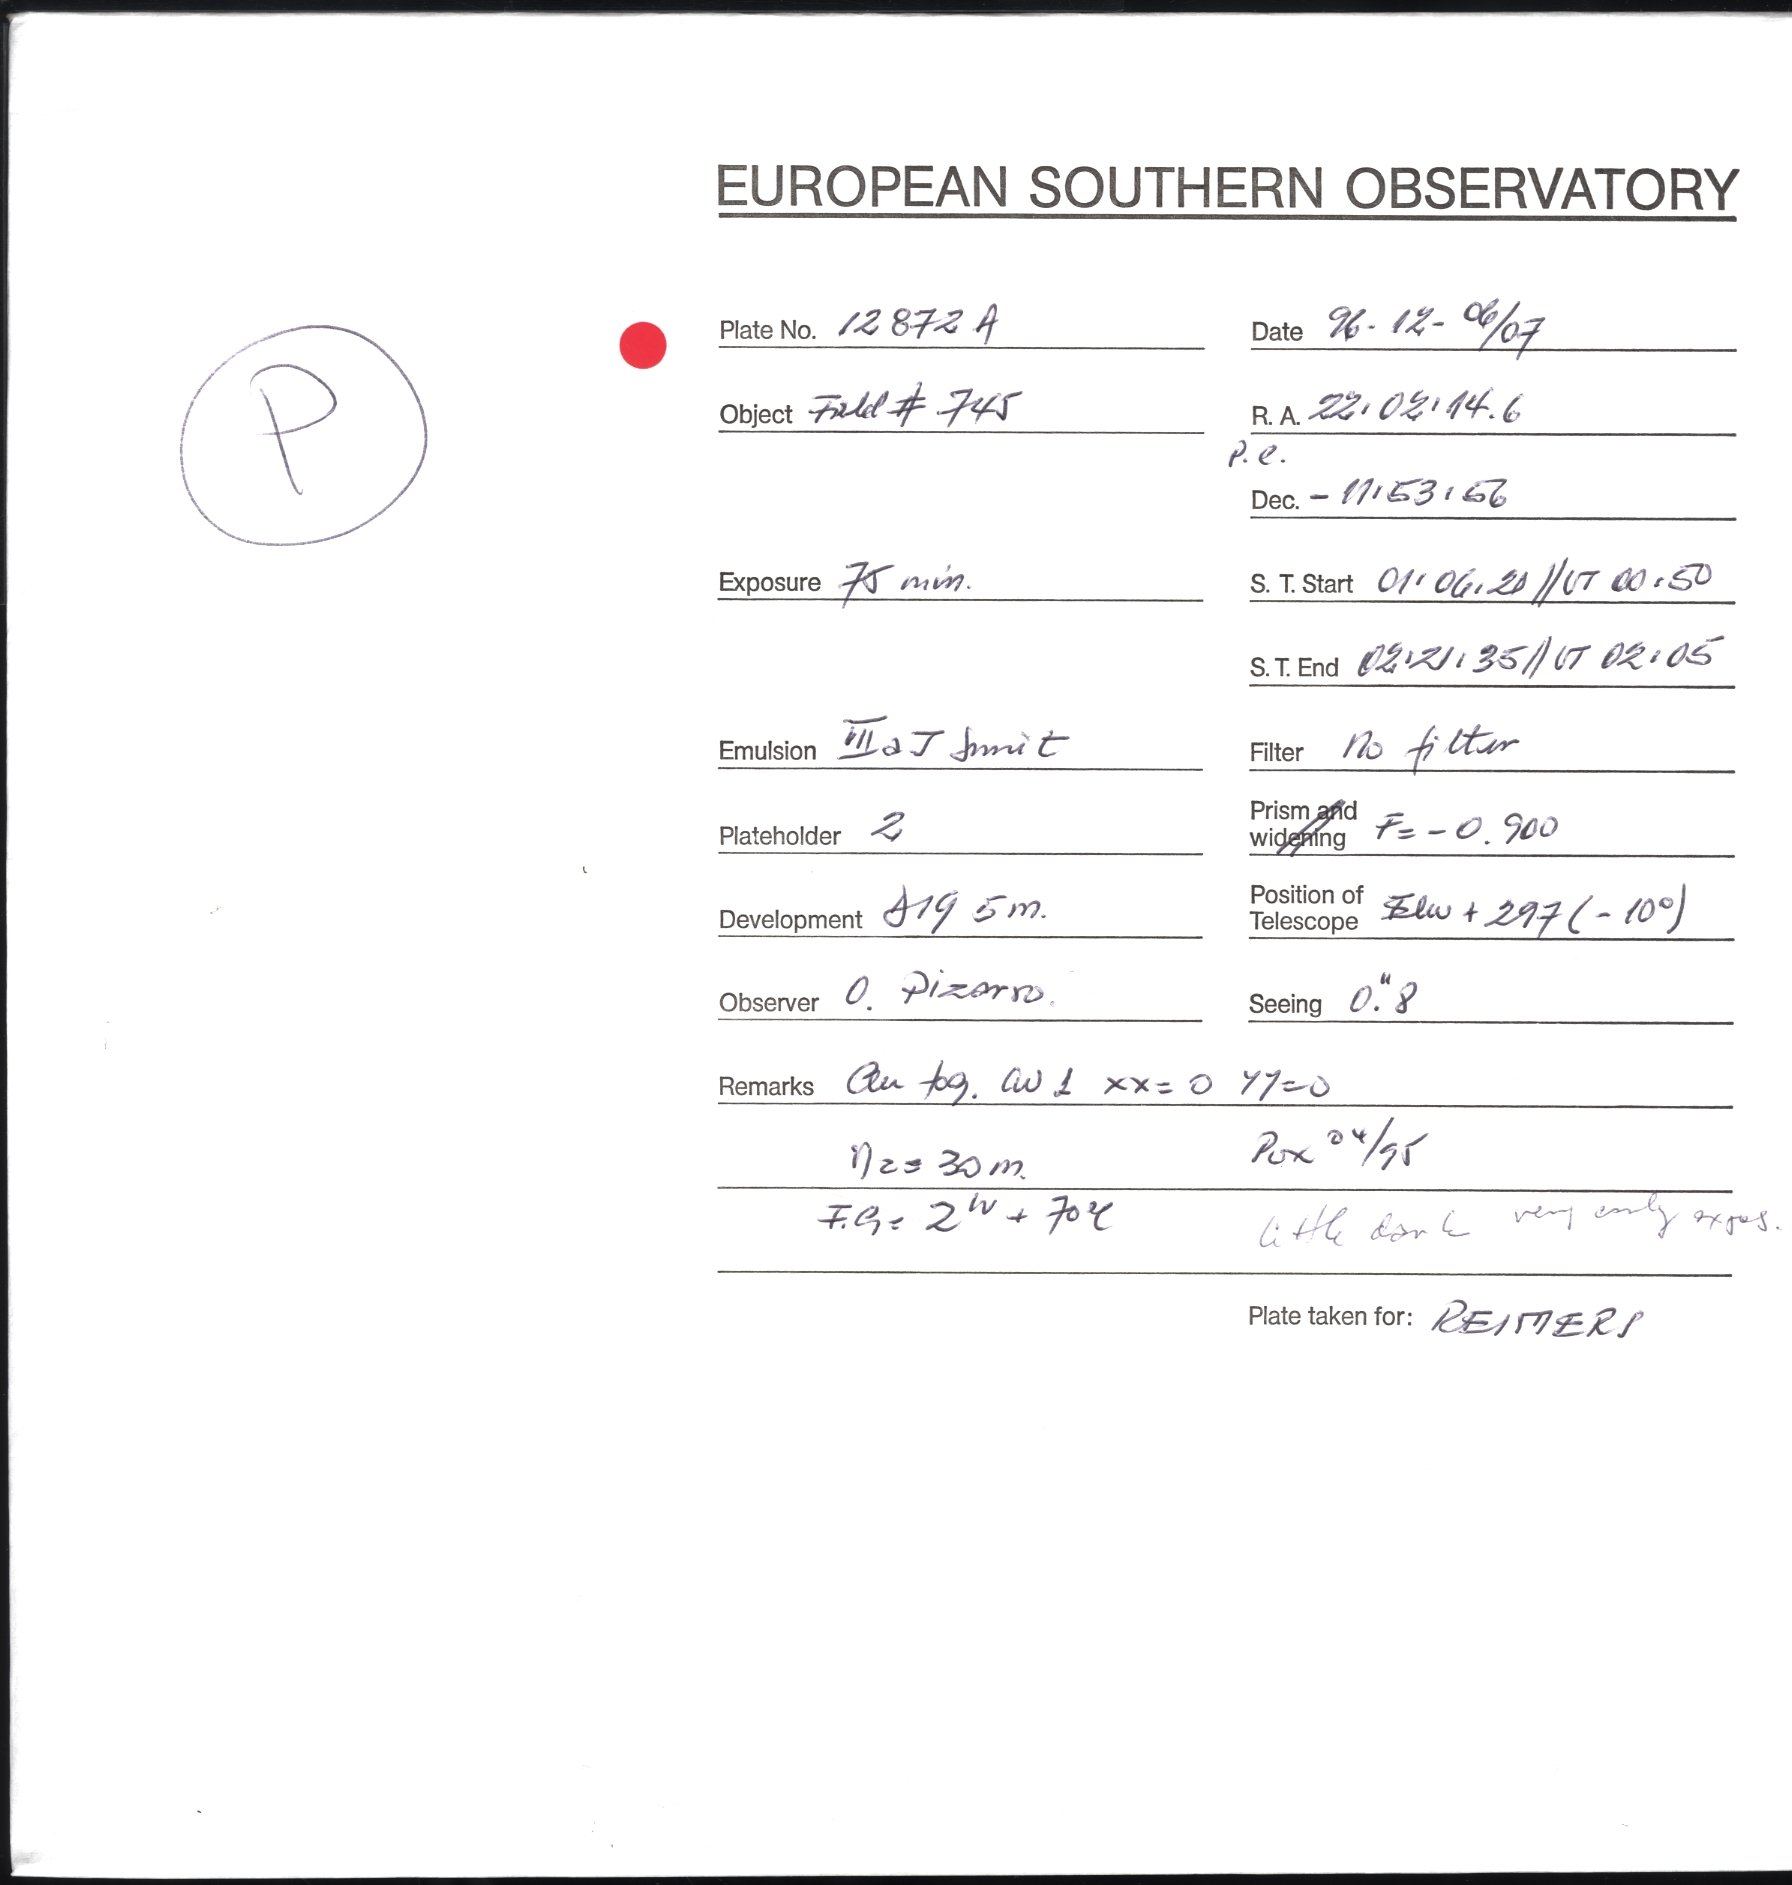 EUROPEAN SOUTHERN OBSERVATORY
P
Plate No. 12872 A
Date 96-12-06/07
Object Field # 745
R. A. 22:02:14.6
P. e.
Dec. - 11:53:56
Exposure 75 min.
S. T. Start 01:06:20 // UT 00:50
S. T. End 02:21:35 // UT 02:05
Emulsion IIIaJ
Filter No filter
Plateholder 2
Prism and widening F= - 0.900
Development D19 5m.
Position of Telescope + 297 (- 10°)
Observer O. Pizarro.
Seeing 0."8
Remarks xx=0 YY=0
N2= 30m.
04/95
F.G= 2
little dark very early expos.
Plate taken for: REIMERS